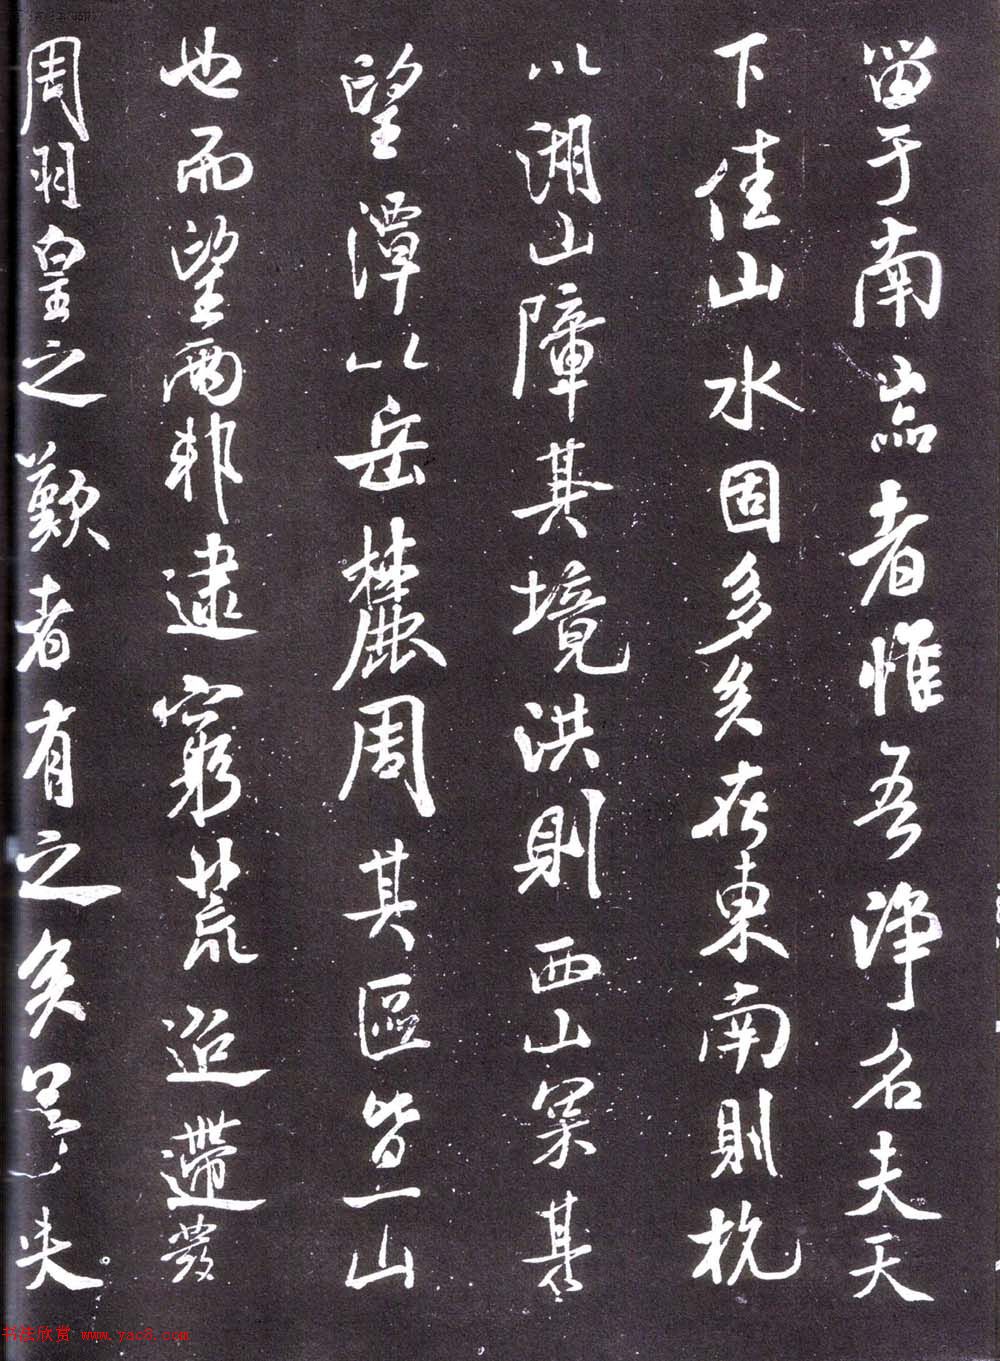 留于南者惟吾淨名夫天
下佳山水固多矣在東南則杭
以湖山障其境洪則西山其
望潭以岳麓周其區皆一山
也而望兩邦逮窮荒迢遰發
周羽皇之歎者有之矣
书法欣赏 www.yac8.com